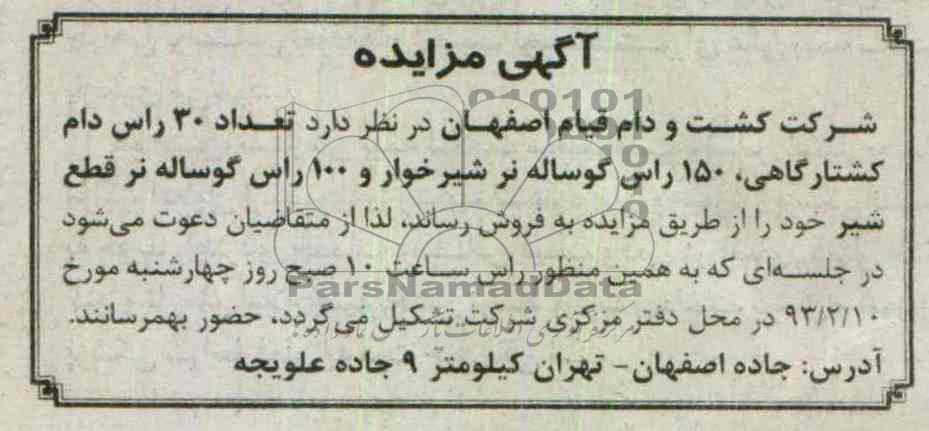 آگهی مزایده
شرکت کشت و دام قیام اصفهان در نظر دارد تعداد ۳۰ راس دام
کشتارگاهی، ۱۵۰ راس گوساله نر شیرخوار و ۱۰۰ راس گوساله نر قطع
شیر خود را از طریق مزایده به فروش رساند، لذا از متقاضیان دعوت می‌شود
در جلسه‌ای که به همین منظور راس ساعت ۱۰ صبح روز چهارشنبه مورخ
ParsNamadData
۹۳/۲/۱۰ در محل دفتر مرکزی شرکت تشکیل می‌گردد، حضور بهمرسانند.
آدرس: جاده اصفهان- تهران کیلومتر ۹ جاده علویجه